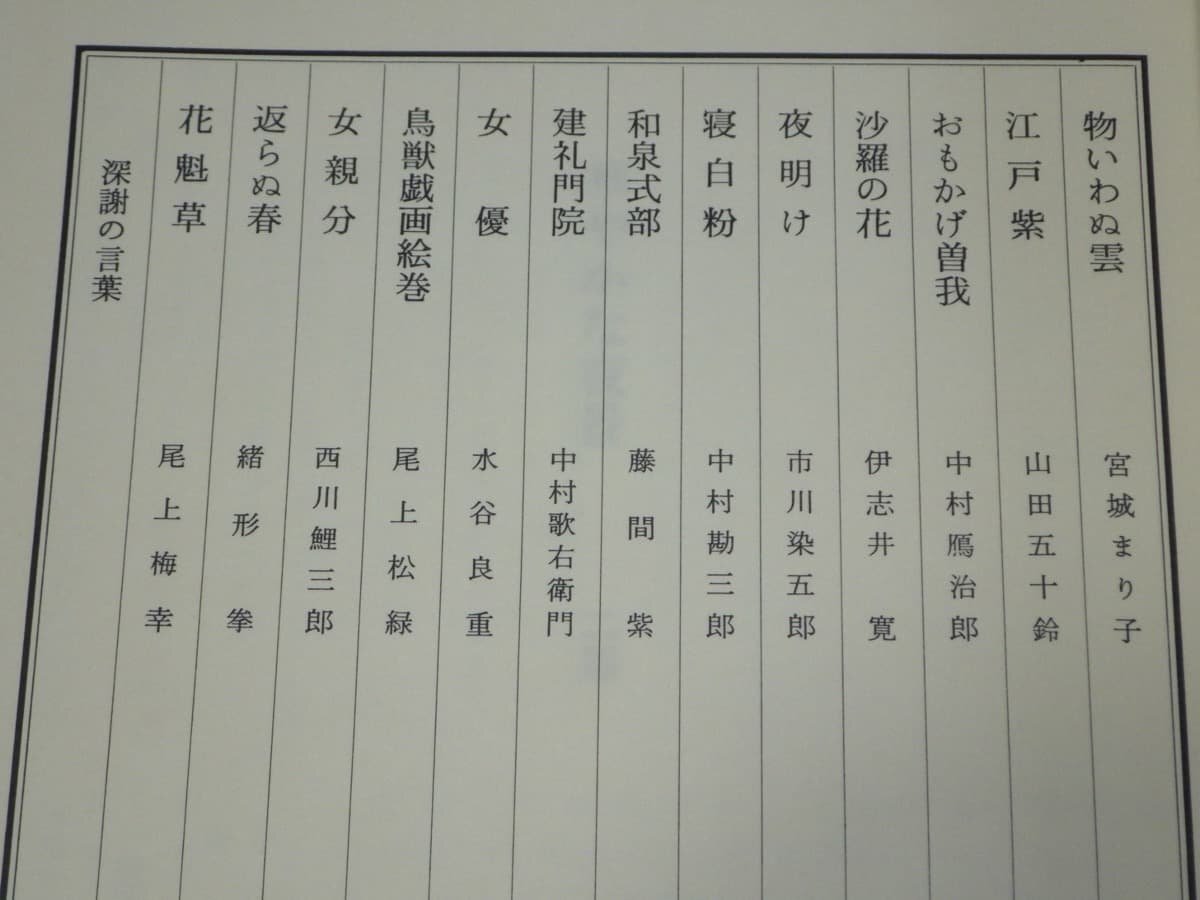 物いわぬ雲 宮城まり子
江戸紫 山田五十鈴
おもかげ曽我 中村鴈治郎
沙羅の花 伊志井寛
夜明け 市川染五郎
寝白粉 中村勘三郎
和泉式部 藤間紫
建礼門院 中村歌右衛門
女優 水谷良重
鳥獣戯画絵巻 尾上松緑
女親分 西川鯉三郎
返らぬ春 緒形拳
花魁草 尾上梅幸
深謝の言葉